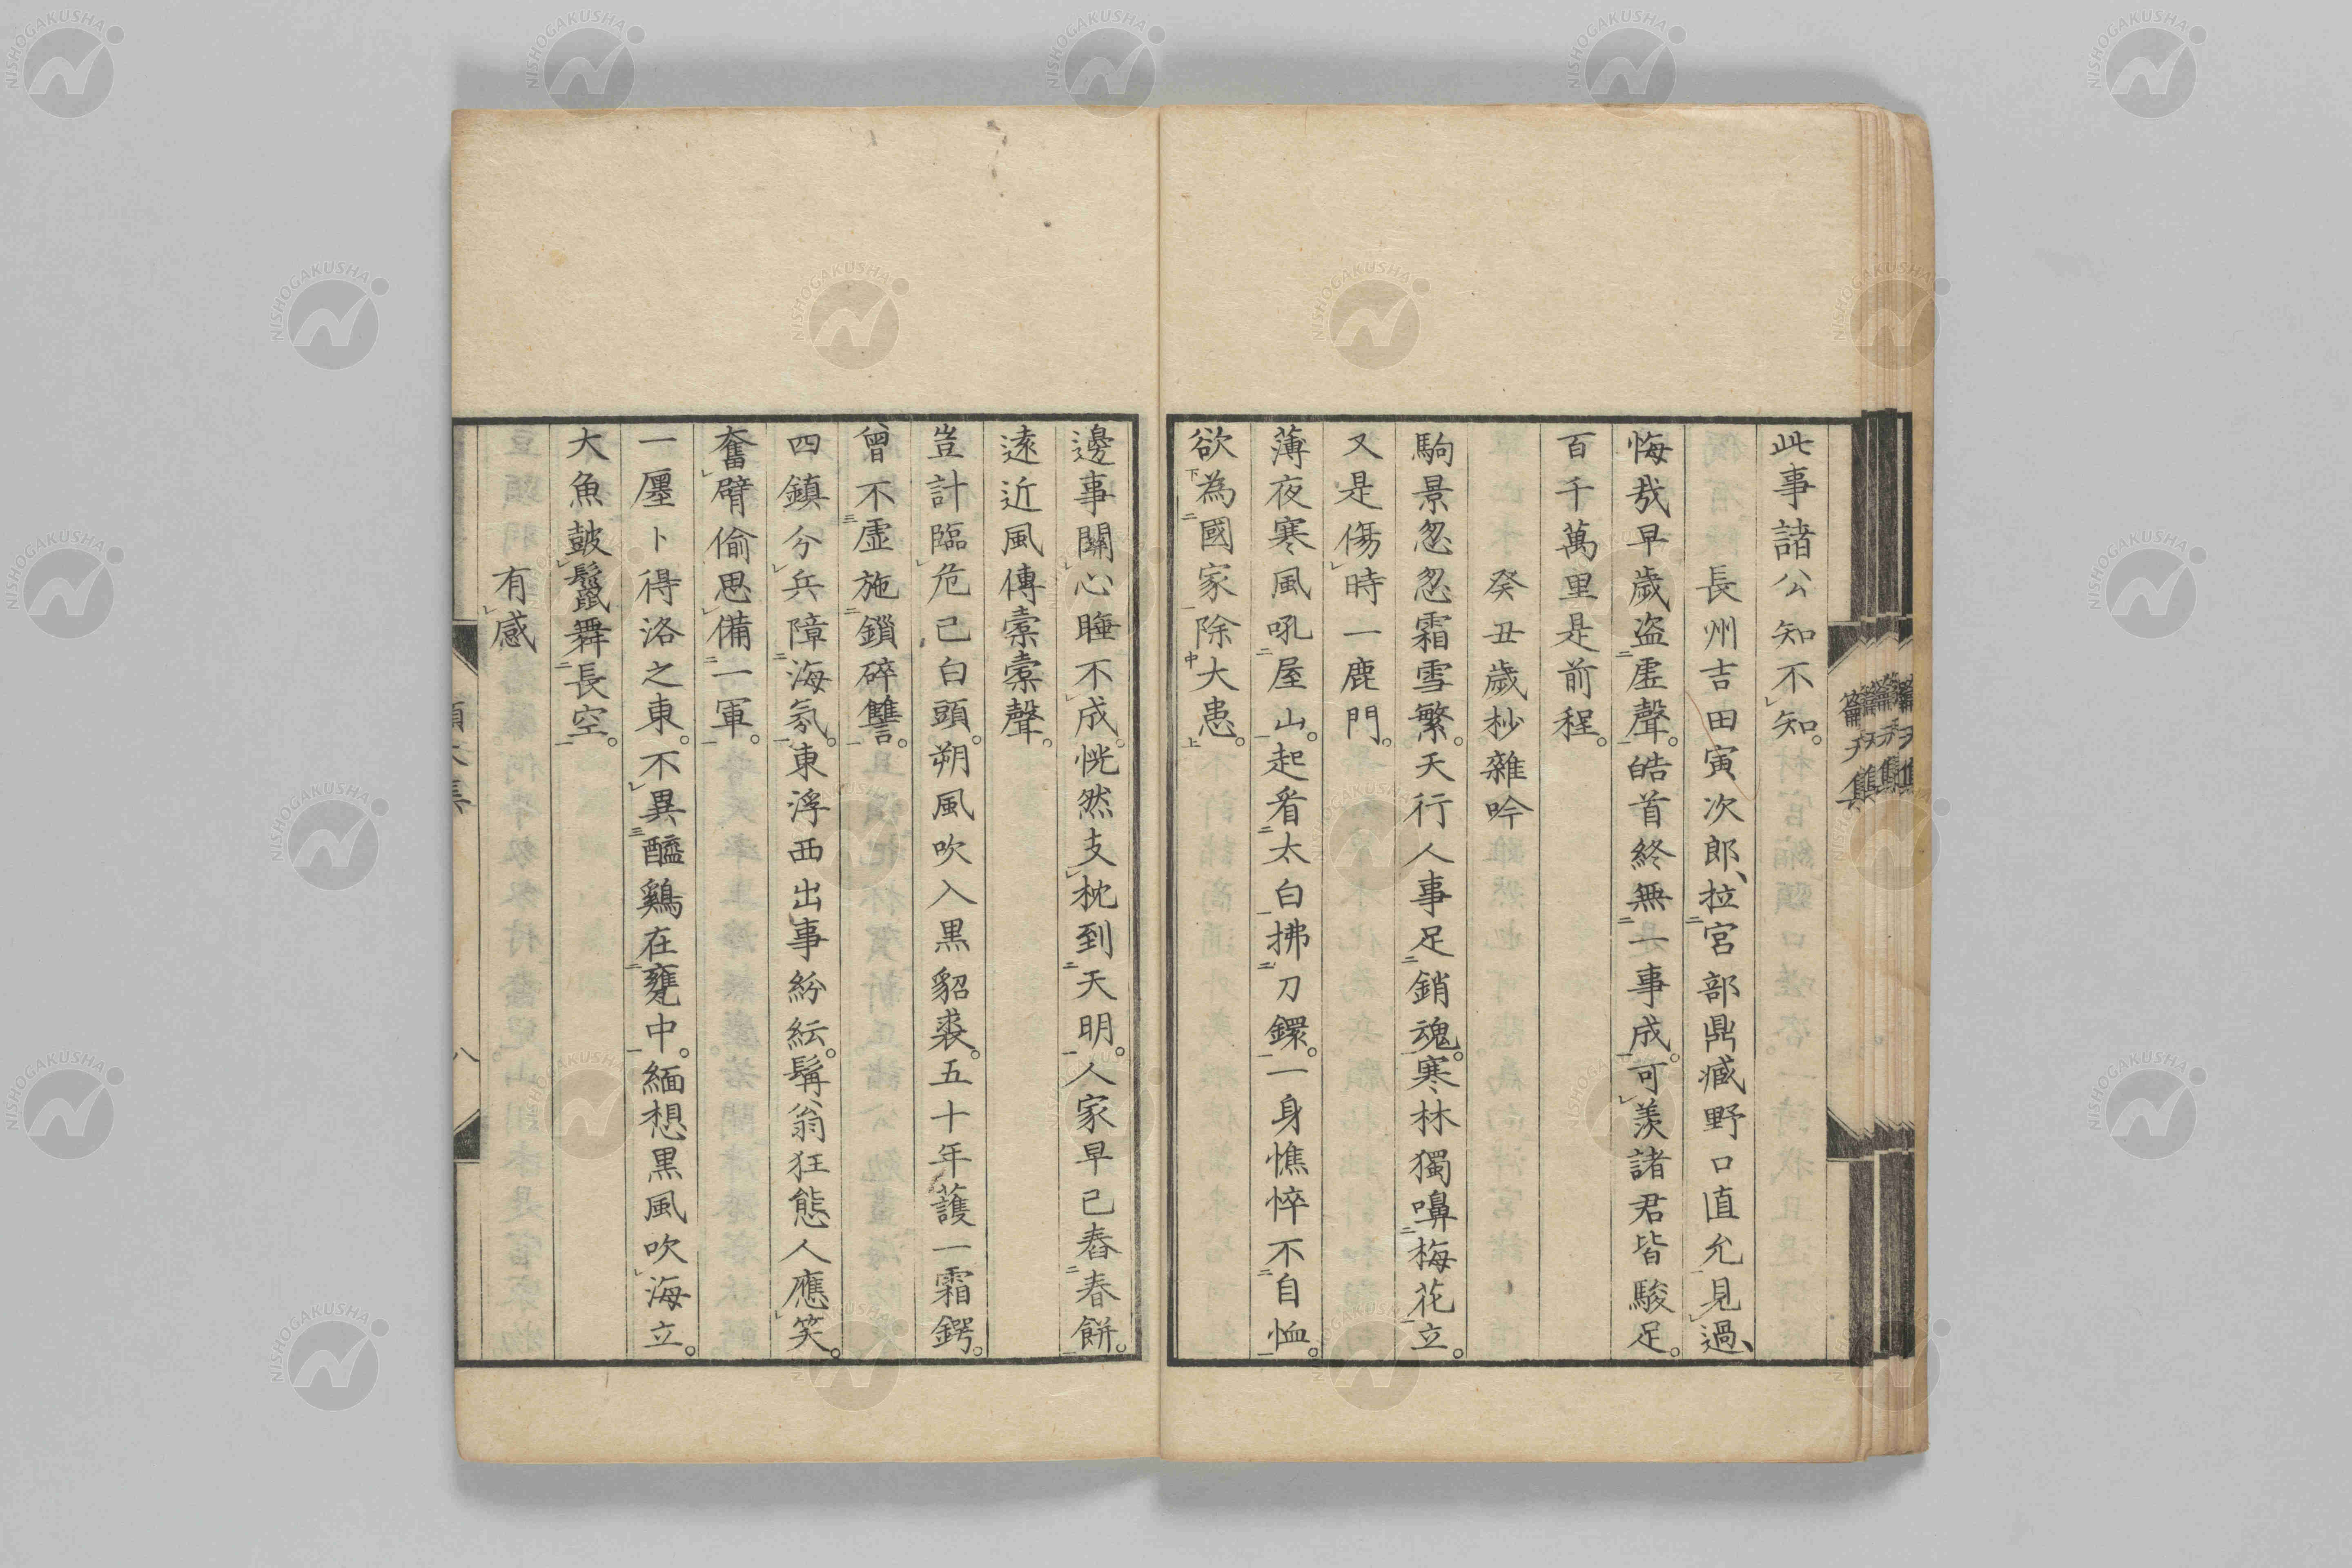 此事諸公知不知。
長州吉田寅次郎、拉宮部鼎臧野口直允見過、
悔哉早歲盜虛聲。皓首終無一事成。可羨諸君皆駿足。
百千萬里是前程。
癸丑歲杪雜吟
駒景忽忽霜雪繁。天行人事足銷魂。寒林獨嗅梅花立。
又是傷時一鹿門。
薄夜寒風吼屋山。起看太白拂刀鐶。一身憔悴不自恤。
欲為國家除大患。
邊事關心睡不成。恍然支枕到天明。人家早已舂春餅。
遠近風傳橐橐聲。
豈計臨危已白頭。朔風吹入黑貂裘。五十年護一霜鍔。
曾不虛施鎖碎讐。
四鎮分兵障海氛。東浮西出事紛紜。髯翁狂態人應笑。
奮臂偷思備一軍。
一廛卜得洛之東。不異醯鷄在甕中。緬想黑風吹海立。
大魚鼓鬣舞長空。
有感
八
NISHOGAKUSHA